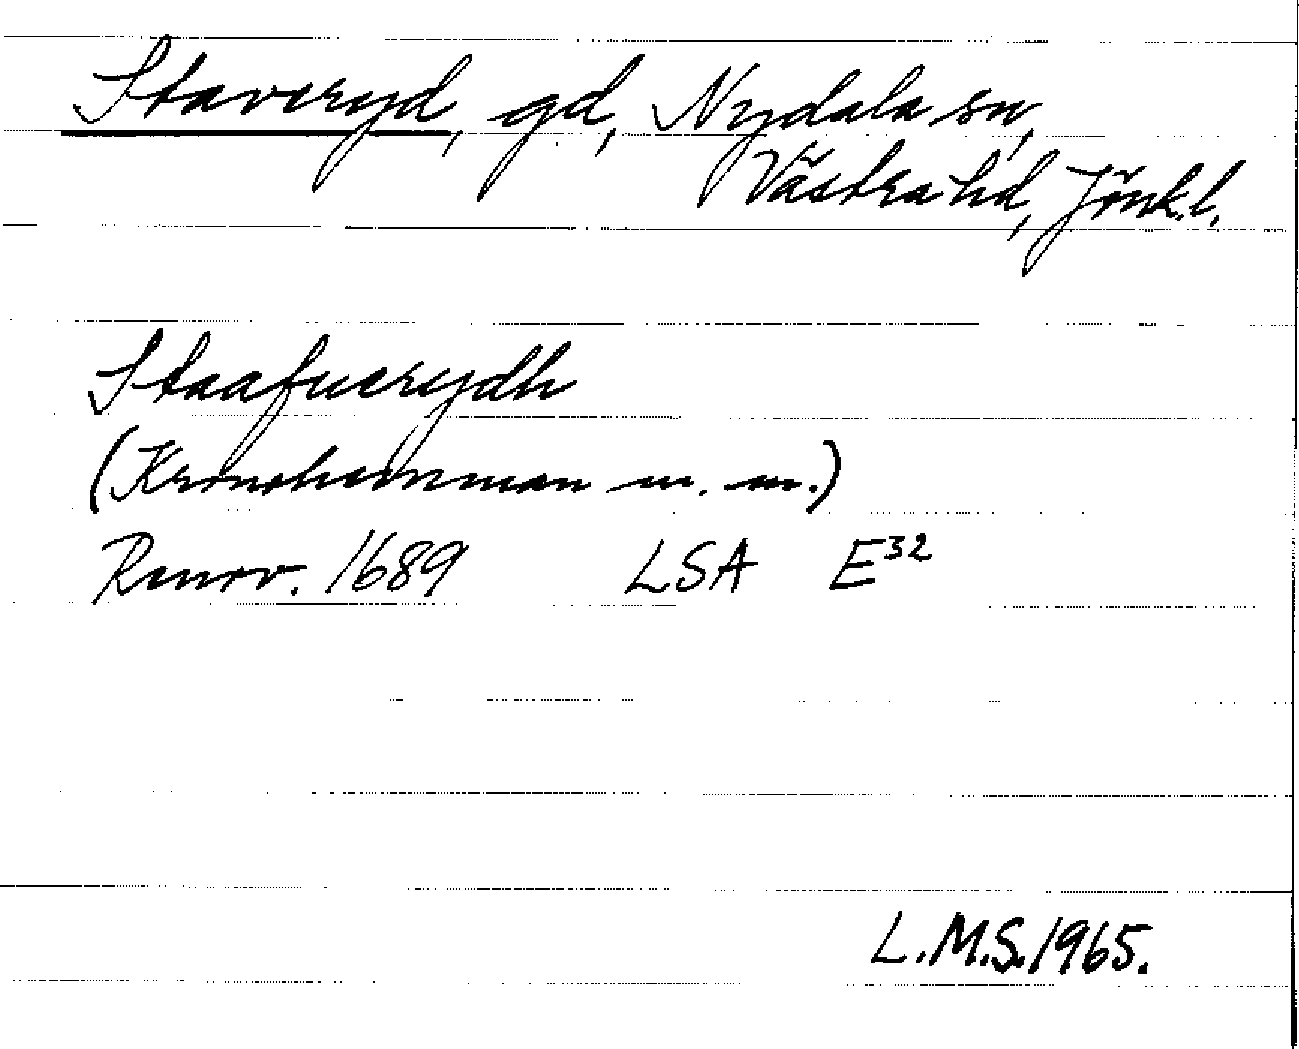 Staveryd, gd, Nydala sn,
Västra hd, Jönk.l.
Staafuerydh
(Kronohemman m. m.)
Renov. 1689 LSA E32
L.M.S. 1965.